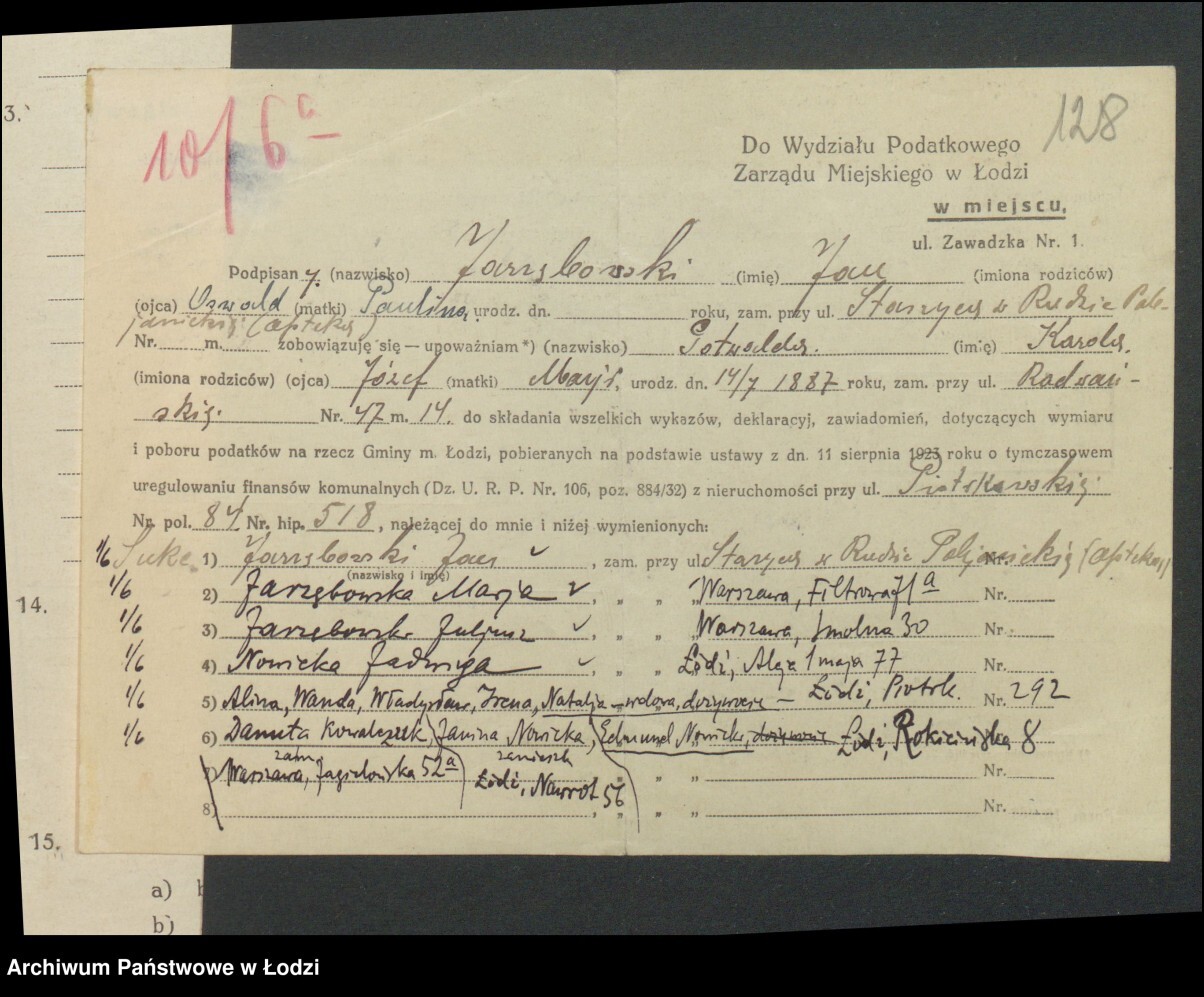 3.
10/6
128
Do Wydziału Podatkowego
Zarządu Miejskiego w Łodzi
w miejscu,
ul. Zawadzka Nr. 1.
Podpisany. (nazwisko) Jarzębowski (imię) Jan (imiona rodziców)
(ojca) Oswald (matki) Paulina, urodz. dn. roku, zam. przy ul. Starzyca w Rudzie Pabjanickiej (apteka)
Nr. m. zobowiązuję się — upoważniam *) (nazwisko) Gotwalda. (imię) Karola,
(imiona rodziców) (ojca) Józef (matki) Marji, urodz. dn. 14/7 1887 roku, zam. przy ul. Radwań-
skiej. Nr. 47 m. 14. do składania wszelkich wykazów, deklaracyj, zawiadomień, dotyczących wymiaru
i poboru podatków na rzecz Gminy m. Łodzi, pobieranych na podstawie ustawy z dn. 11 sierpnia 1923 roku o tymczasowem
uregulowaniu finansów komunalnych (Dz. U. R. P. Nr. 106, poz. 884/32) z nieruchomości przy ul. Piotrkowskiej
Nr. pol. 84 Nr. hip. 518, należącej do mnie i niżej wymienionych:
1/6 Sukc. 1) Jarzębowski Jan, zam. przy ul. Starzyca w Rudzie Pabjanickiej (apteka) Nr.
(nazwisko i imię)
1/6 2) Jarzębowska Marja, „ „ „ Warszawa, Filtrowa 71a Nr.
1/6 3) Jarzębowski Juljusz, „ „ „ Warszawa, Smolna 30 Nr.
14.
1/6 4) Nowicka Jadwiga, „ „ „ Łódź, Aleja 1 maja 77 Nr.
1/6 5) Alina, Wanda, Władysław, Irena, Natalja wdowa, dożywocie – Łódź, Piotrk. Nr. 292
1/6 6) Danuta Kowalczuk, Janina Nowicka, Edmund Nowicki, dożywocie Łódź, Rokicińska 8
7) zam. Warszawa, Jagielońska 52a zamieszk. Łódź, Nawrot 56 „ „ Nr.
8) , „ „ „ Nr.
15.
a)
b)
Archiwum Państwowe w Łodzi